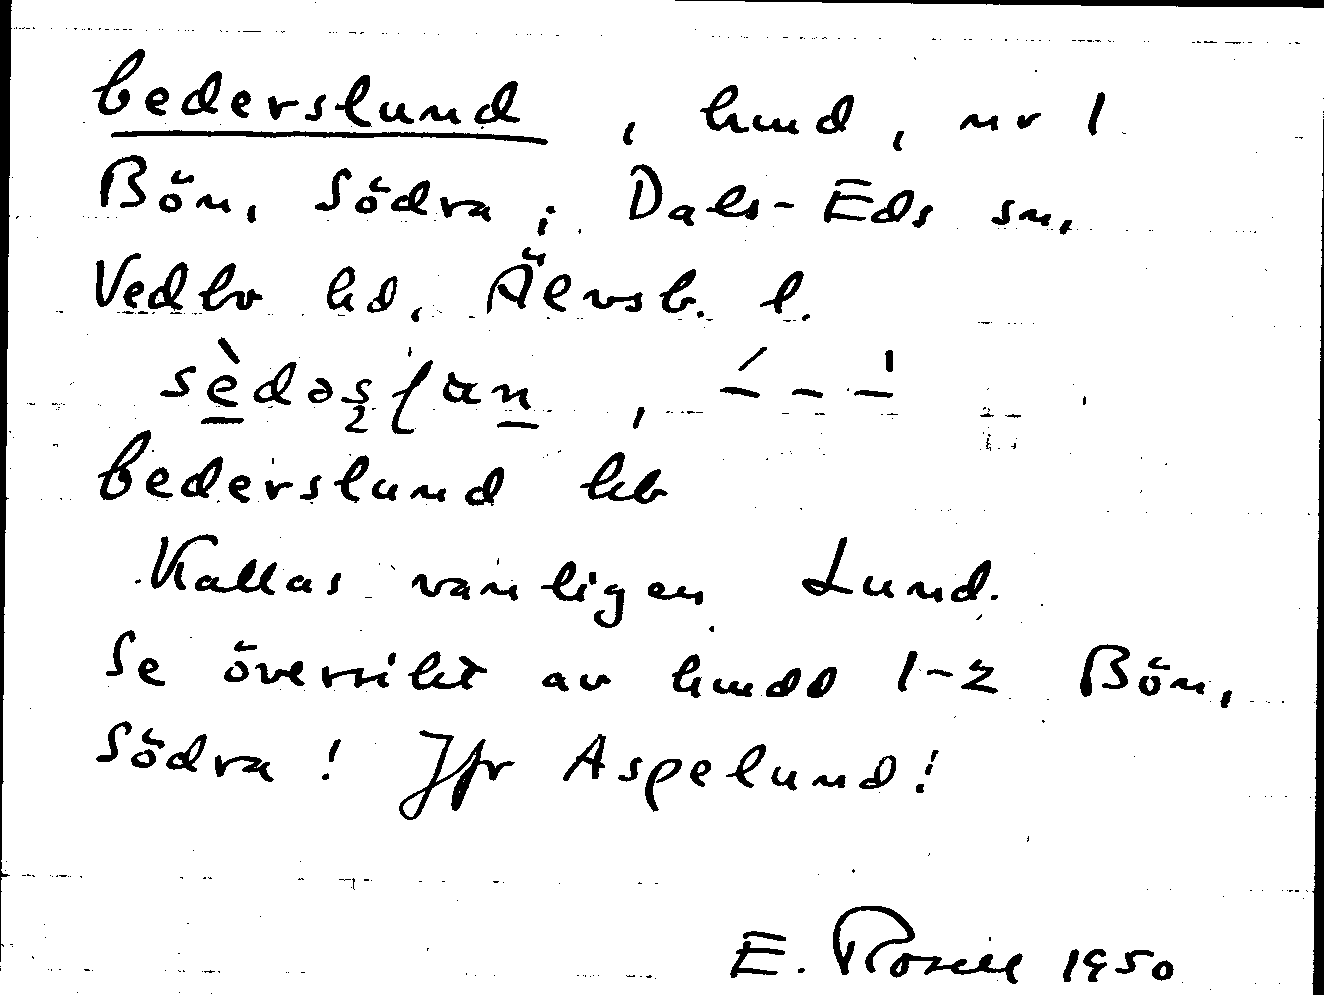 Cederslund, hmd, nr 1
Bön, Södra; Dals-Eds sn,
Vedbo hd, Älvsb. l.
Cederslund
Kallas vanligen Lund.
Se översikt av hmdd 1-2 Bön,
Södra! Jfr Aspelund!
E. Rosell 1950